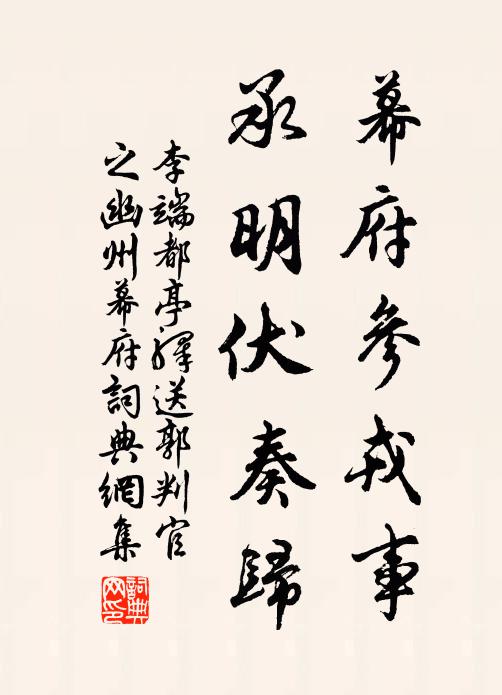 幕府參戎事
承明伏奏歸
李端都亭驛送郭判官
之幽州幕府詞典網集